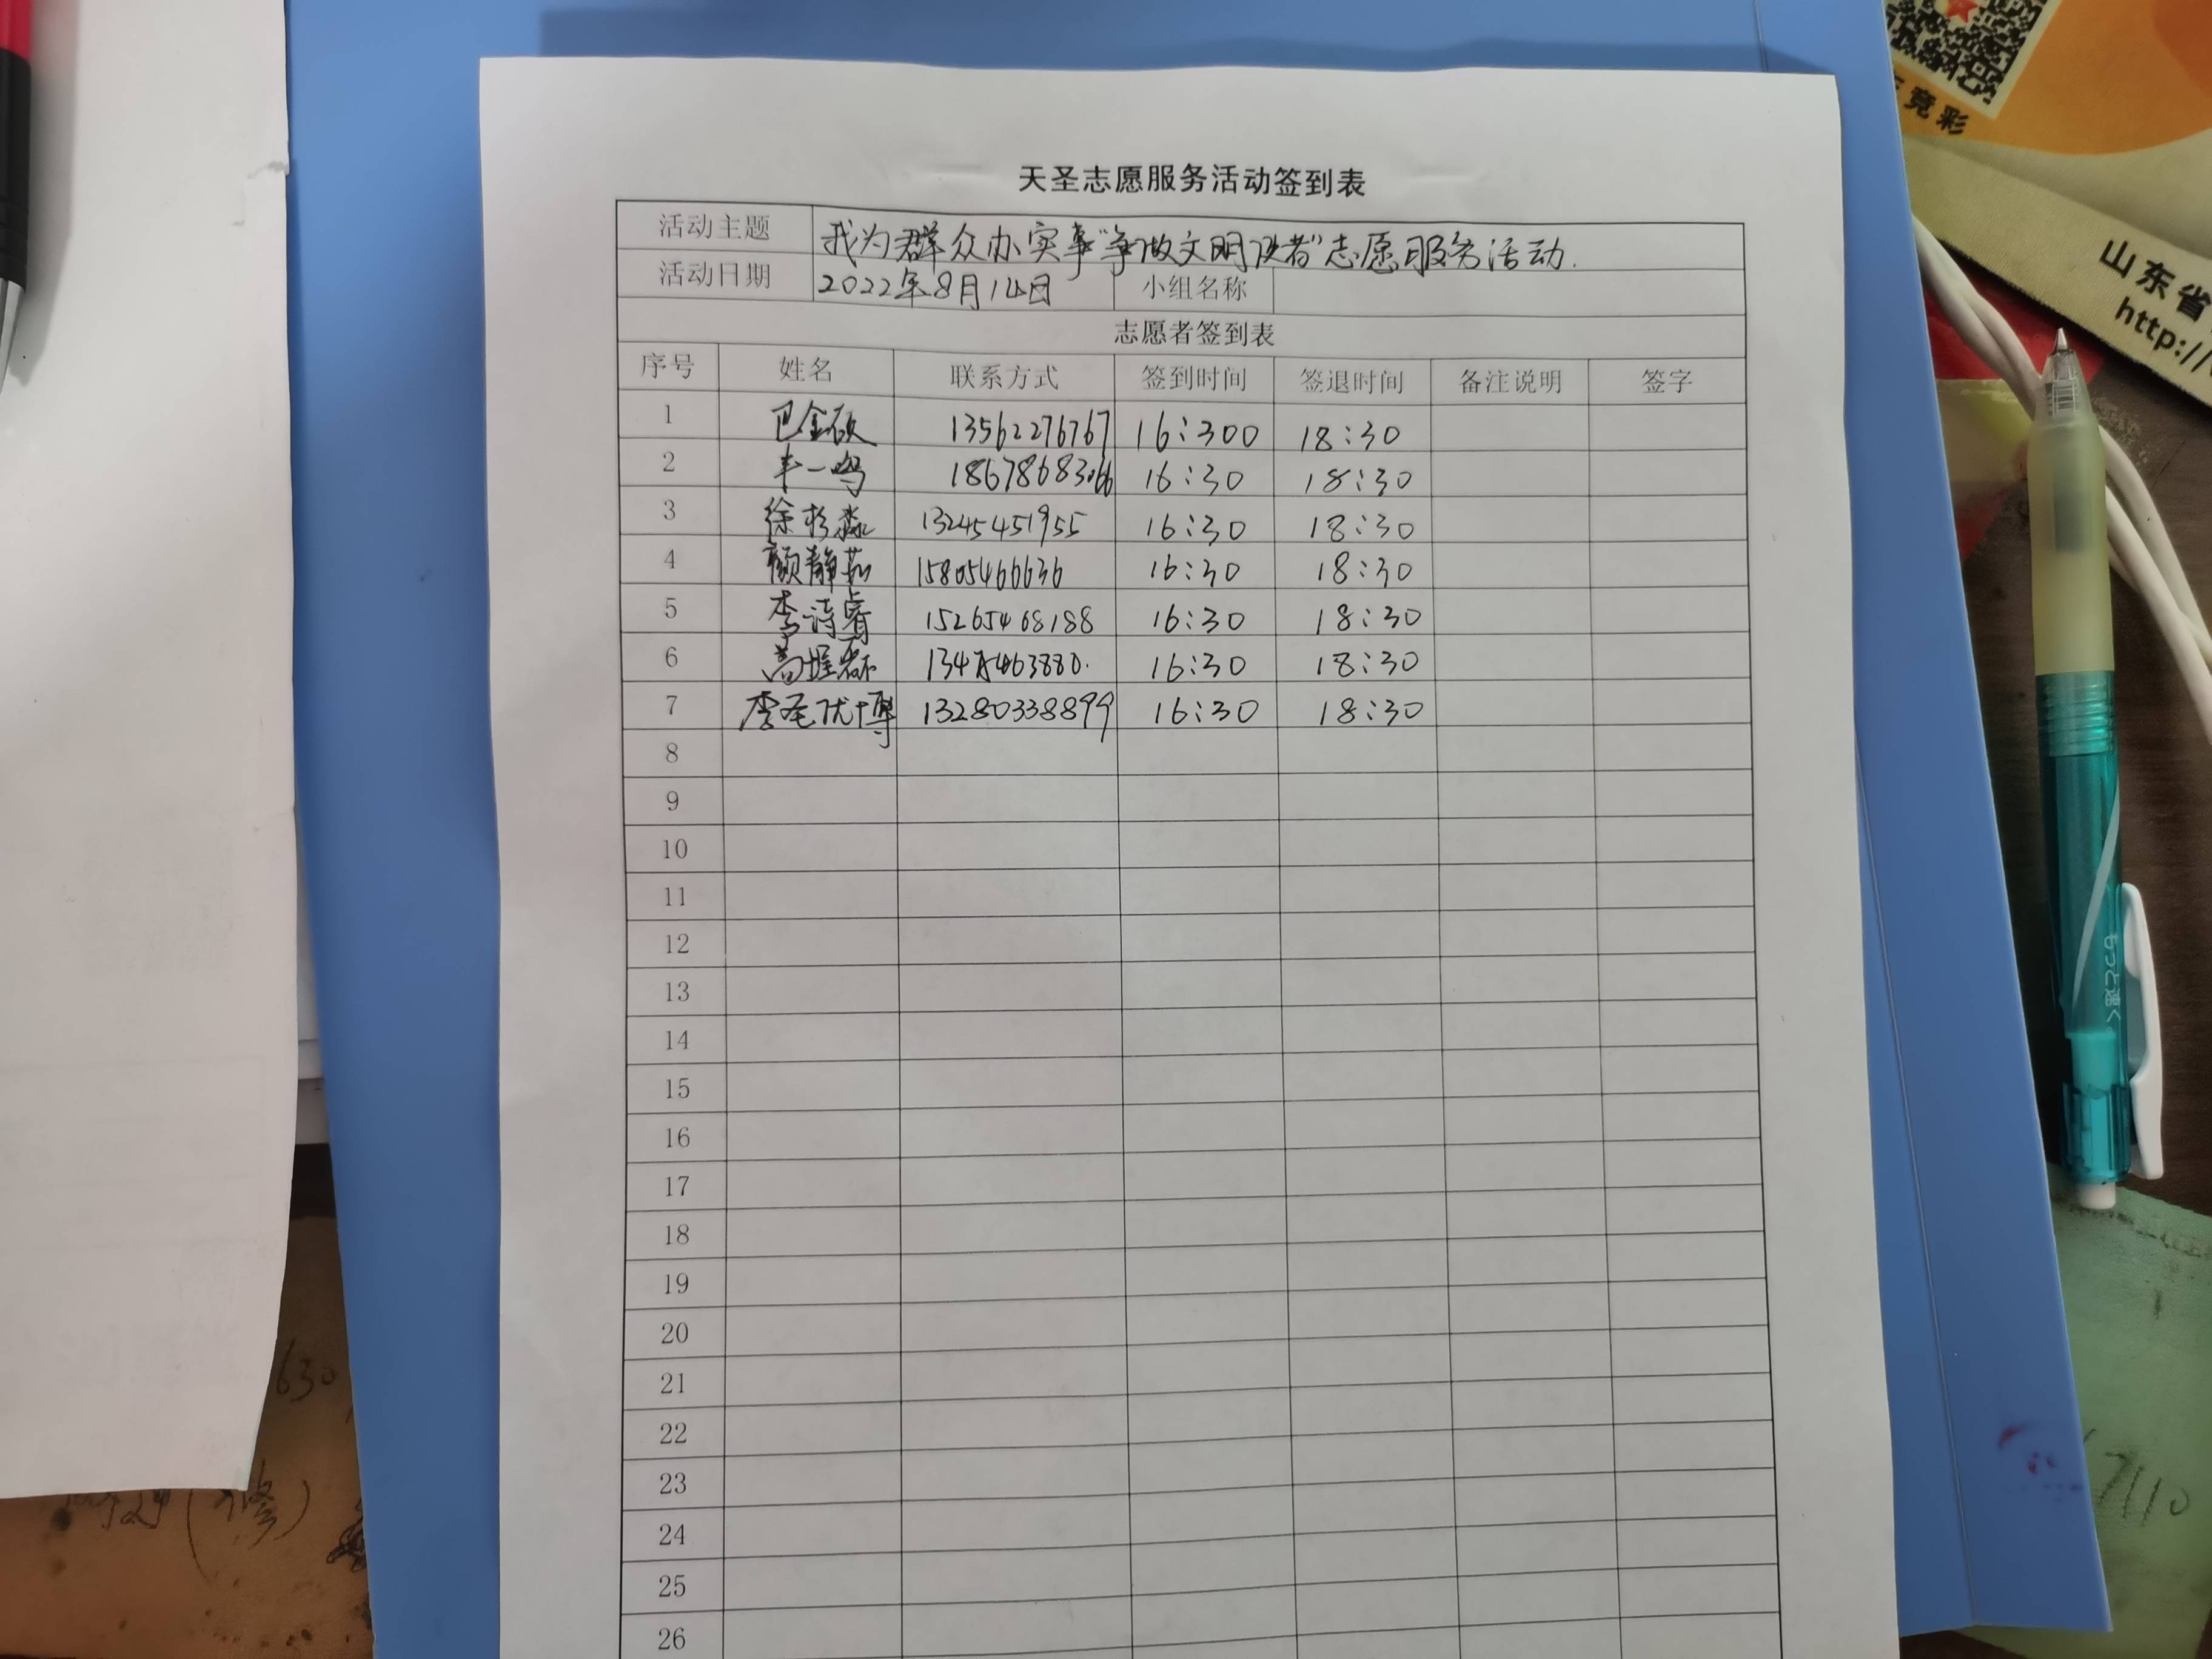 天圣志愿服务活动签到表
活动主题 我为群众办实事"争做文明使者"志愿服务活动.
活动日期 2022年8月14日 小组名称
志愿者签到表
序号 姓名 联系方式 签到时间 签退时间 备注说明 签字
1 巴金硕 13562276767 16:300 18:30
2 丰一鸣 18678683066 16:30 18:30
3 徐杉淼 13245451955 16:30 18:30
4 颜静茹 15805466636 16:30 18:30
5 李诗睿 15265468188 16:30 18:30
6 16:30 18:30
7 李圣优博 13280338899 16:30 18:30
8
9
10
11
12
13
14
15
16
17
18
19
20
21
22
23
24
25
26
竞彩
山东省
http://
もっと速く。
630
(修)
7110